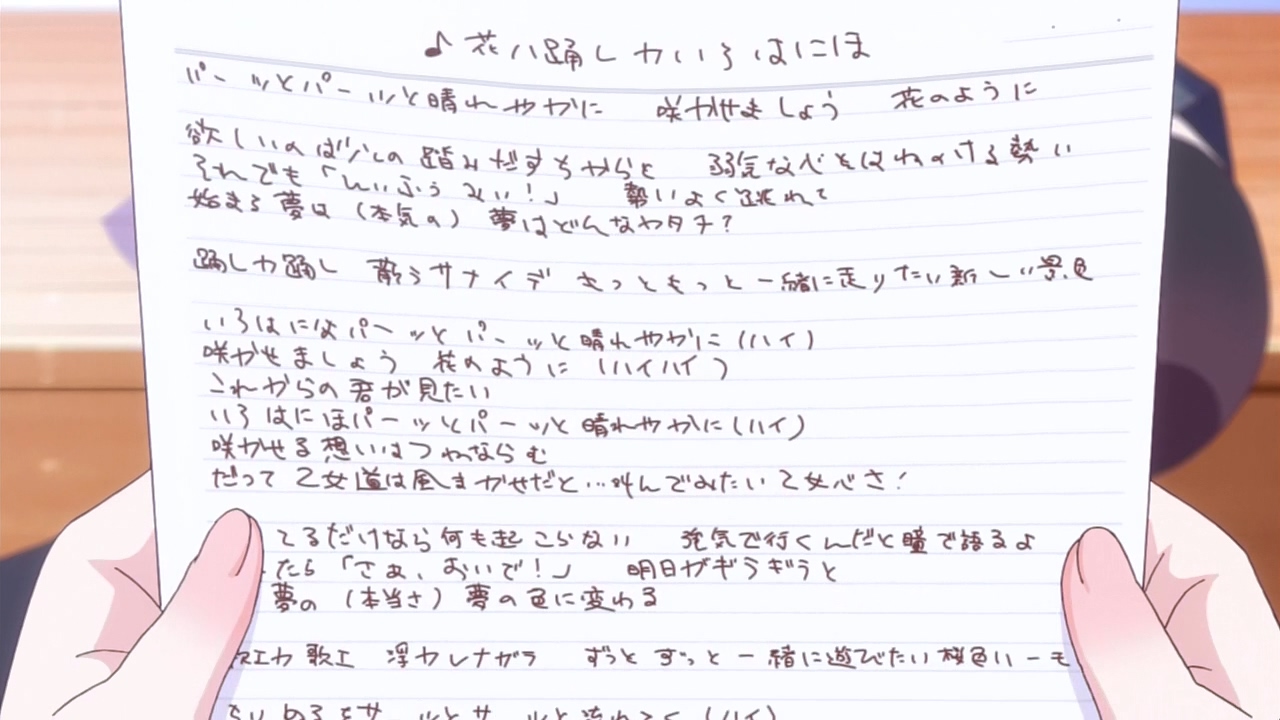 ♪花ハ踊レヤいろはにほ
パーッとパーッと晴れやかに 咲かせましょう 花のように
欲しいのは少しの踏みだすちからと 弱気な心をはねのける勢い
それでも「ひぃふぅみぃ!」 勢いよく跳ねて
始まる夢は(本気の)夢はどんなカタチ?
踊レヤ踊レ 歌うサナイデ きっともっと一緒に走りたい新しい景色
いろはにほパーッとパーッと晴れやかに(ハイ)
咲かせましょう 花のように(ハイハイ)
これからの君が見たい
いろはにほパーッとパーッと晴れやかに(ハイ)
咲かせる想いはつねならむ
だって乙女道は風まかせだと…叫んでみたい乙女心さ!
てるだけなら何も起こらない 強気で行くんだと瞳で語るよ
たら「さぁ、おいで!」 明日がギラギラと
夢の(本当さ)夢の色に変わる
歌エヤ歌エ 浮カレナガラ ずっとずっと一緒に遊びたい桜色いーも
ちりぬるをサーッとサーッと流れてく(ハイ)